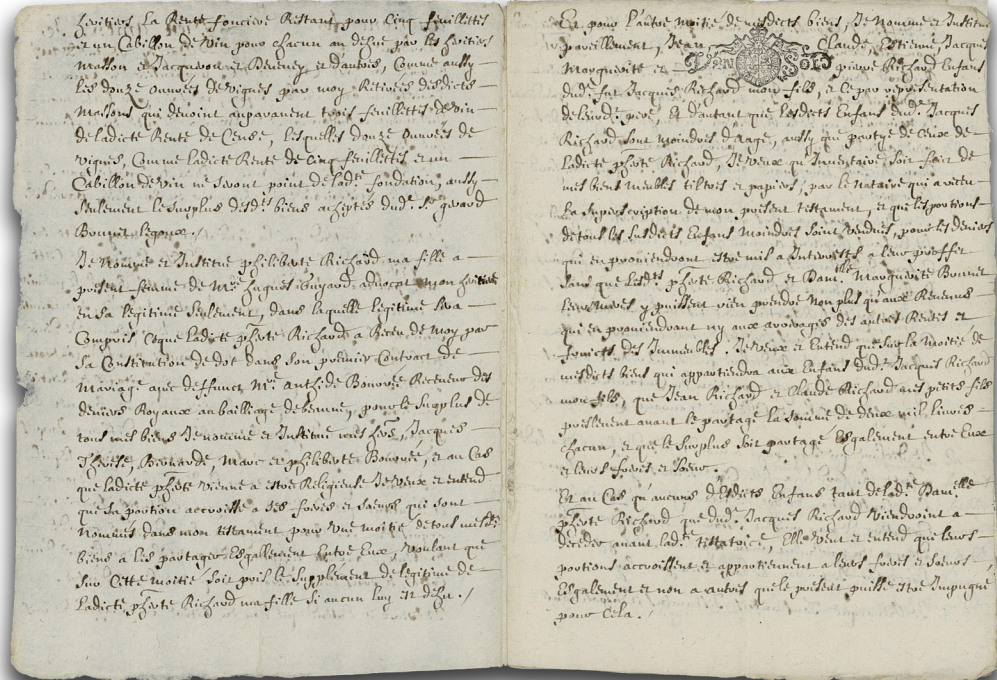 heritiers, La Rente fonciere Restant pour Cinq feuillettes
et un Cabillon de vin pour chacun an deheue par les heritiers
Masson et Jacqueron et Beueney et d'autres, Comme aussy
les douze ouurées de vignes par moy Retirées desdicts
Massons qui deuoint auparauant trois feuillettes de vin
de ladicte Rente de Cense, lesquelles douze ouurées de
vignes, Comme ladicte Rente de Cinq feuillettes et un
Cabillon de vin ne seront point de lad.e fondation, aussy
seulement le surplus desd.s biens acheptés dud. S.r gerard
Bonnir legoux./
Je Nomme et Institue philiberte Richard ma fille a
present femme de M.re hugues Guyard, aduocat mon heritiere
en sa legitime seulement, dans laquelle legitime sera
Compris Ce que ladicte ph.erte Richard a Receu de Moy par
sa Constitution de dot dans son premier Contract de
Mariage auec deffunct M.re anth.de Bourrée Receueur des
deniers Royaux au bailliage de beaune, pour le surplus de
tous mes biens Je nomme et Institue mes h.ers, Jacques
Therese, Bernarde, Marc et philiberte Bourrée, et au Cas
que ladicte ph.erte vienne a estre Religieuse Je veux et entend
que sa portion accroisse a ses freres et soeurs qui sont
Nommés dans mon testament pour vne moitié de tous mesd.
biens a les partager Esgallement Entre Eux, voulant que
sur Cette moitié soit pris le supplement de legitime de
Ladicte ph.erte Richard ma fille si aucun luy est deheu./
Et pour l'autre moitié de mesdicts biens, Je Nomme et Institue
pareillement, Jean Claude, Estienne, Jacques
Marguerite et pierre Richard Enfans
dud. fut Jacques Richard mon fils, et le par representation
de leurd. pere, Et d'autant que lesdicts Enfans dud. Jacques
Richard sont moindres d'aage, aussy que partye de Ceux de
ladicte ph.erte Richard, Je veux qu'Inuentaire soit fait de
mes biens meubles tiltres et papiers, par le Notaire qui a receu
La superscription de mon present testament, et que les portions
de tous les susdicts Enfans Moindres soint vendues, pour les deniers
qui en prouiendront estre mis a Interests a leur proffit
sans que lesd.s ph.erte Richard et Dam.lle Marguerite Bonnir
leurs meres y puissent rien prendre Non plus qu'aux Reuenus
qui en prouiendront ny aux arrerages des autres Rentes et
fruicts des Immeubles. Je veux et Entend que sur la moitié de
mesdicts biens qui appartiendra aux Enfans dud. Jacques Richard
mon fils, que Jean Richard et Claude Richard mes petits fils
preleuent auant le partage la somme de deux mil liures
chacun, et que le surplus soit partagé Esgalement entre Eux
et leurs freres et soeur.
Et au Cas qu'aucuns desdicts Enfans tant de lad.te Dam.elle
ph.erte Richard que dud. Jacques Richard viendroint a
deceder auant lad.e testatrice, Elle veut et entend que leurs
portions accroissent et appartiennent a leurs freres et soeurs
Esgalement et non a autres que le present puisse estre Impugné
pour Cela.